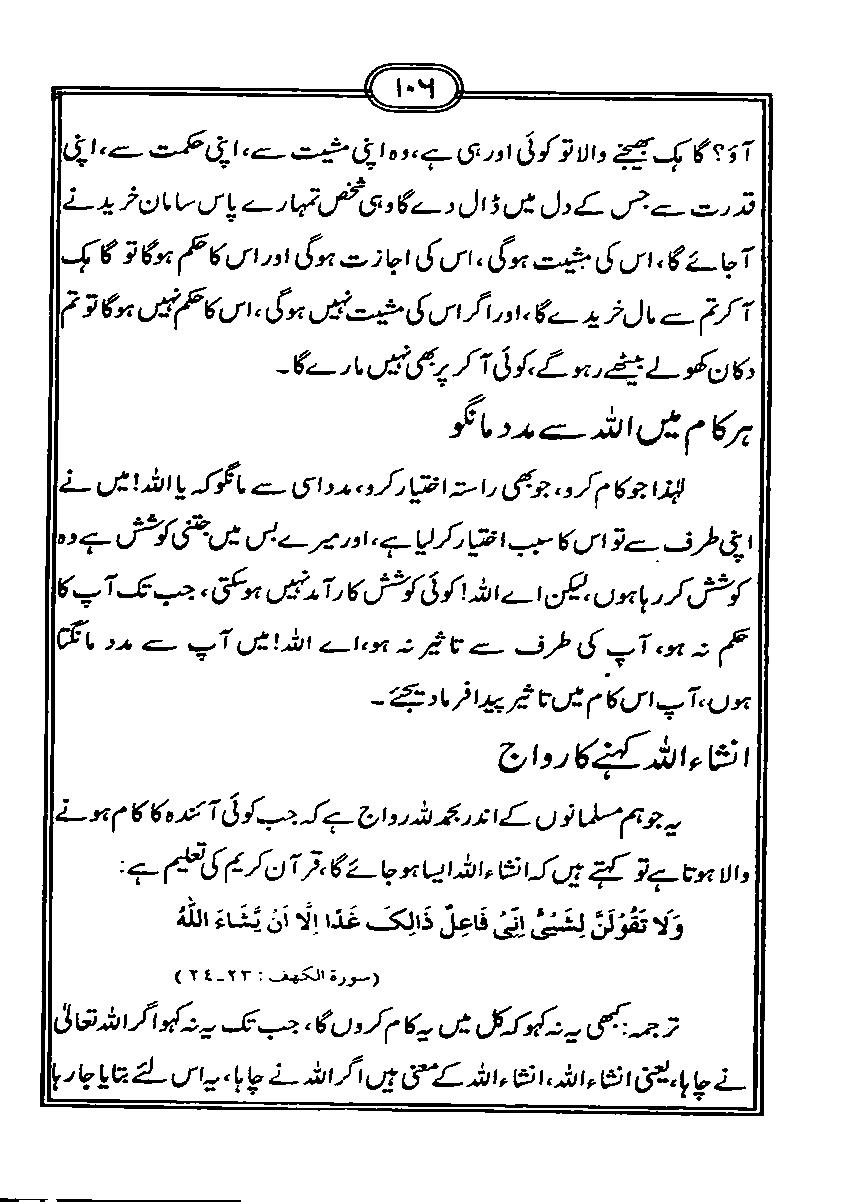 ۱۰۶
آؤ؟ گاہک بھیجنے والا تو کوئی اور ہی ہے، وہ اپنی مشیت سے، اپنی حکمت سے، اپنی
قدرت سے جس کے دل میں ڈال دے گا وہی شخص تمہارے پاس سامان خریدنے
آجائے گا، اس کی مشیت ہوگی، اس کی اجازت ہوگی اور اس کا حکم ہوگا تو گاہک
آکر تم سے مال خریدے گا، اور اگر اس کی مشیت نہیں ہوگی، اس کا حکم نہیں ہوگا تو تم
دکان کھولے بیٹھے رہوگے، کوئی آکر پر بھی نہیں مارے گا۔
ہر کام میں اللہ سے مدد مانگو
لہٰذا جو کام کرو، جو بھی راستہ اختیار کرو، مدد اسی سے مانگو کہ یا اللہ! میں نے
اپنی طرف سے تو اس کا سبب اختیار کرلیا ہے، اور میرے بس میں جتنی کوشش ہے وہ
کوشش کررہا ہوں، لیکن اے اللہ! کوئی کوشش کارآمد نہیں ہوسکتی، جب تک آپ کا
حکم نہ ہو، آپ کی طرف سے تاثیر نہ ہو، اے اللہ! میں آپ سے مدد مانگتا
ہوں، آپ اس کام میں تاثیر پیدا فرمادیجئے۔
انشاء اللہ کہنے کا رواج
یہ جو ہم مسلمانوں کے اندر بحمد للہ رواج ہے کہ جب کوئی آئندہ کا کام ہونے
والا ہوتا ہے تو کہتے ہیں کہ انشاء اللہ ایسا ہوجائے گا، قرآن کریم کی تعلیم ہے:
وَلَا تَقُوْلَنَّ لِشَیْئٍ اِنِّیْ فَاعِلٌ ذَالِکَ غَدًا اِلَّا اَنْ یَّشَاءَ اللّٰہُ
(سورۃ الکھف : ۲۳۔۲٤)
ترجمہ: کبھی یہ نہ کہو کہ کل میں یہ کام کروں گا، جب تک یہ نہ کہو اگر اللہ تعالیٰ
نے چاہا، یعنی انشاء اللہ، انشاء اللہ کے معنی ہیں اگر اللہ نے چاہا، یہ اس لئے بتایا جارہا